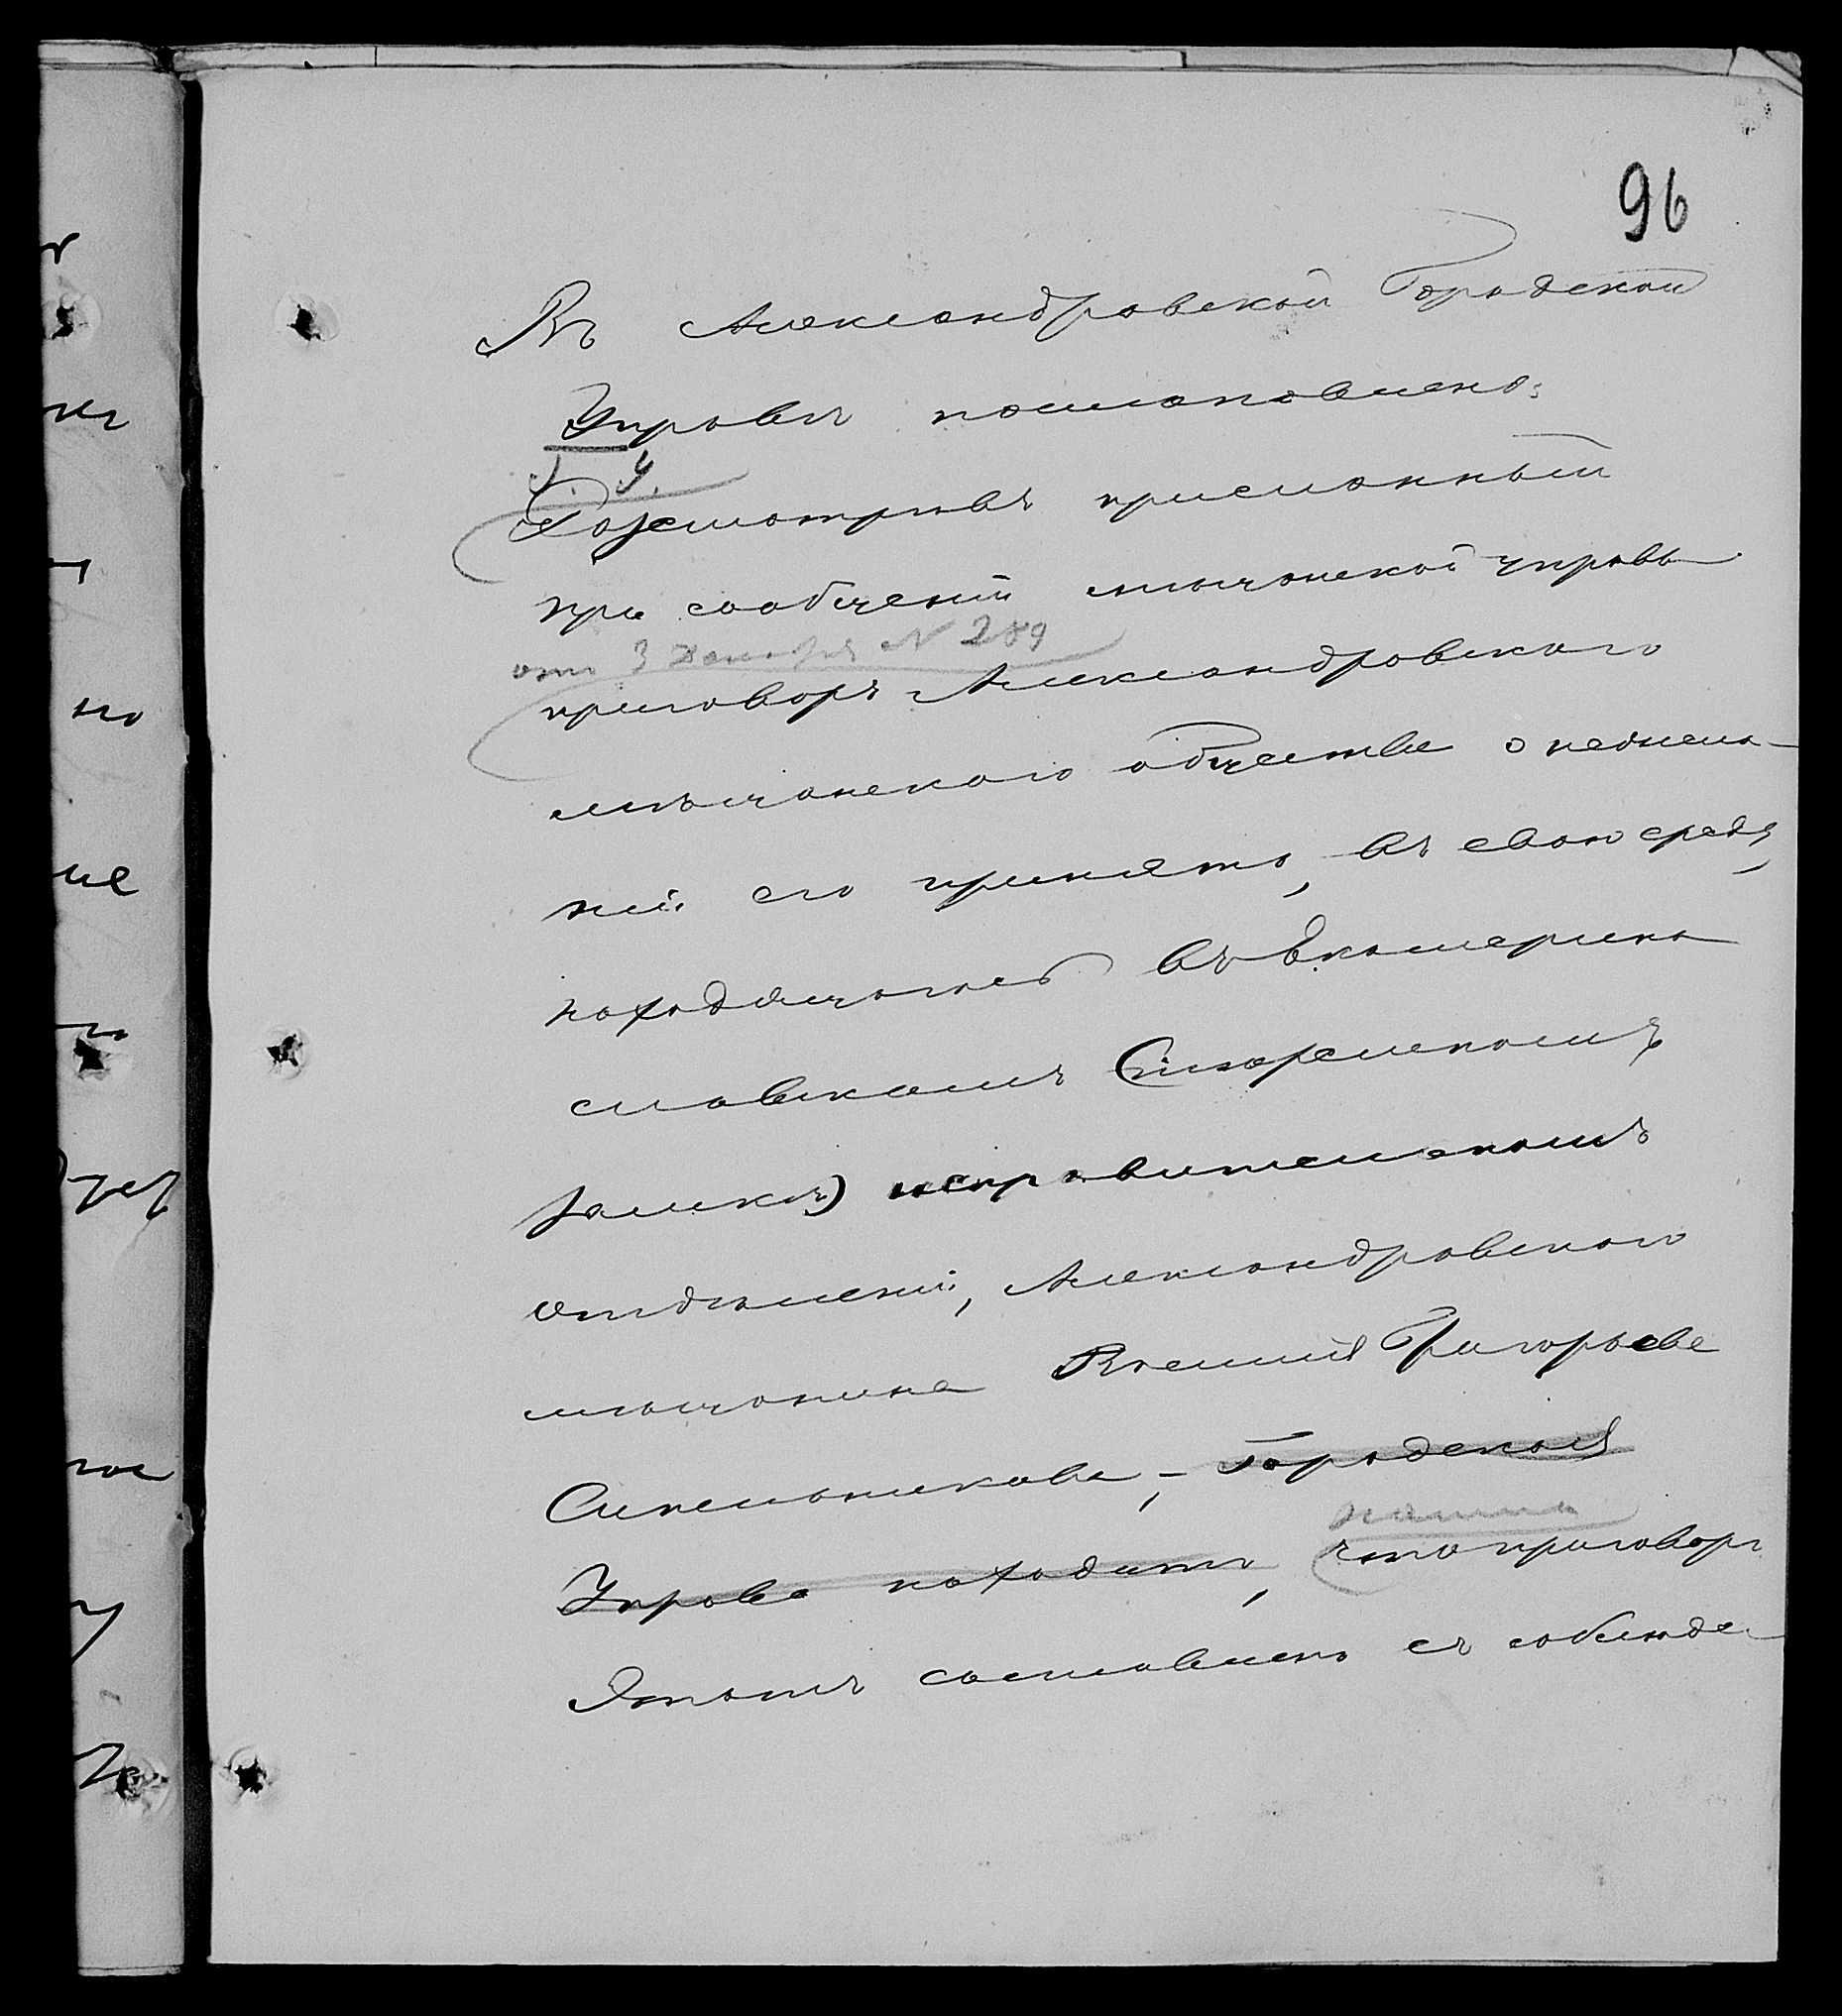 96
Въ Александровской Городской
Управѣ постановлено:
Г. У.
Разсмотрѣвъ присланный
при сообщеніи мѣщанской управы
отъ 3 Декабря № 289
приговоръ Александровского
мѣщанского общества о нежела-
ніи его принять, въ свою среду,
находящагося въ Екатерино
славскомъ Тюремномъ
замкѣ) исправительномъ
отдѣленіи, Александровского
мѣщанина Василія Григорьева
Синельникова, - Городская
нашла
Управа находитъ, что приговоръ
этотъ составленъ съ соблюде